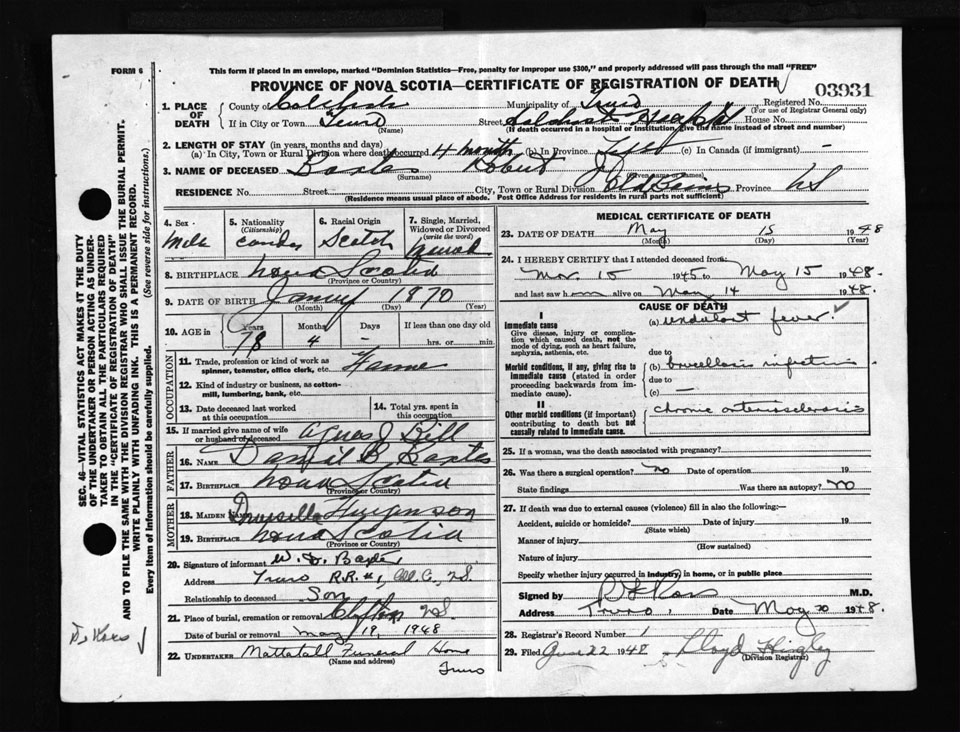 FORM 6
This form if placed in an envelope, marked "Dominion Statistics—Free, penalty for improper use $300," and properly addressed will pass through the mail "FREE"
PROVINCE OF NOVA SCOTIA—CERTIFICATE OF REGISTRATION OF DEATH
03931
1. PLACE OF DEATH
County of Colchester
Municipality of Truro
Registered No.
(For use of Registrar General only)
If in City or Town Truro
(Name)
Street Colchester Hospital House No.
(If death occurred in a hospital or Institution, give the name instead of street and number)
2. LENGTH OF STAY (in years, months and days)
(a) In City, Town or Rural Division where death occurred 4 month (b) In Province Life (c) In Canada (if immigrant) -
3. NAME OF DECEASED Baxter Robert J
(Surname) (Given names)
RESIDENCE No. Street City, Town or Rural Division Old Barns Province NS
(Residence means usual place of abode. Post Office Address for residents in rural parts not sufficient)
4. Sex
Male
5. Nationality (Citizenship)
6. Racial Origin
Scotch
7. Single, Married, Widowed or Divorced (write the word)
8. BIRTHPLACE Nova Scotia
(Province or Country)
9. DATE OF BIRTH 1870
(Month) (Day) (Year)
10. AGE in
Years Months Days If less than one day old
78 4 - hrs. or min.
OCCUPATION
11. Trade, profession or kind of work as spinner, teamster, office clerk, etc.
12. Kind of industry or business, as cotton-mill, lumbering, bank, etc.
13. Date deceased last worked at this occupation
14. Total yrs. spent in this occupation
15. If married give name of wife or husband of deceased Agnes J Hill
FATHER
16. NAME Daniel B Baxter
17. BIRTHPLACE Nova Scotia
(Province or Country)
MOTHER
18. MAIDEN NAME Drusilla
19. BIRTHPLACE Nova Scotia
(Province or Country)
20. Signature of informant W. D. Baxter
Address Truro R.R. #1, Col. Co., N.S.
Relationship to deceased Son
21. Place of burial, cremation or removal Clifton NS
Date of burial or removal May 19, 1948
22. UNDERTAKER Mattatall Funeral Home
(Name and address) Truro
MEDICAL CERTIFICATE OF DEATH
23. DATE OF DEATH May 15 1948
(Month) (Day) (Year)
24. I HEREBY CERTIFY that I attended deceased from:
Mar 15 1945 to May 15 1948.
and last saw him alive on May 14 1948.
CAUSE OF DEATH
I
Immediate cause
Give disease, injury or complication which caused death, not the mode of dying, such as heart failure, asphyxia, asthenia, etc.
(a) undulant fever
due to
Morbid conditions, if any, giving rise to immediate cause (stated in order proceeding backwards from immediate cause).
(b) brucellosis infection
due to
(c) —
II
Other morbid conditions (if important) contributing to death but not causally related to immediate cause.
chronic arteriosclerosis
25. If a woman, was the death associated with pregnancy?
26. Was there a surgical operation? no Date of operation 19
State findings Was there an autopsy? no
27. If death was due to external causes (violence) fill in also the following:—
Accident, suicide or homicide? Date of injury 19
(State which)
Manner of injury
(How sustained)
Nature of injury
Specify whether injury occurred in industry, in home, or in public place
Signed by Ross M.D.
Address Truro, Date May 20 1948.
28. Registrar's Record Number 1
29. Filed June 22 1948 Lloyd Hingley
(Division Registrar)
SEC. 46—VITAL STATISTICS ACT MAKES IT THE DUTY OF THE UNDERTAKER OR PERSON ACTING AS UNDERTAKER TO OBTAIN ALL THE PARTICULARS REQUIRED IN THE "CERTIFICATE OF REGISTRATION OF DEATH" AND TO FILE THE SAME WITH THE DIVISION REGISTRAR WHO SHALL ISSUE THE BURIAL PERMIT.
WRITE PLAINLY WITH UNFADING INK. THIS IS A PERMANENT RECORD.
Every item of information should be carefully supplied. (See reverse side for instructions.)